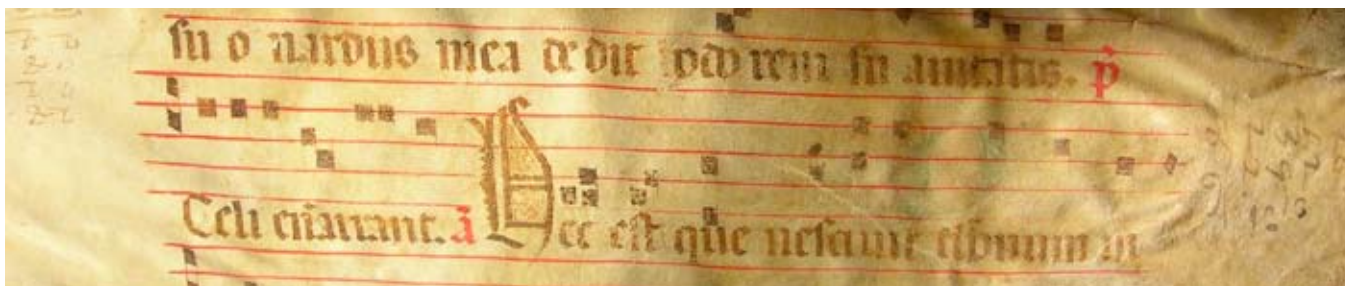 su o nardus mea dedit odorem suavitatis. p̄
Celi enarrant. ā Hec est que nescivit thorum in